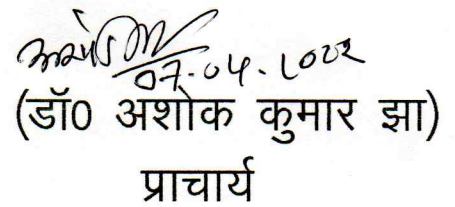 07.04.2022
(डॉ0 अशोक कुमार झा)
प्राचार्य